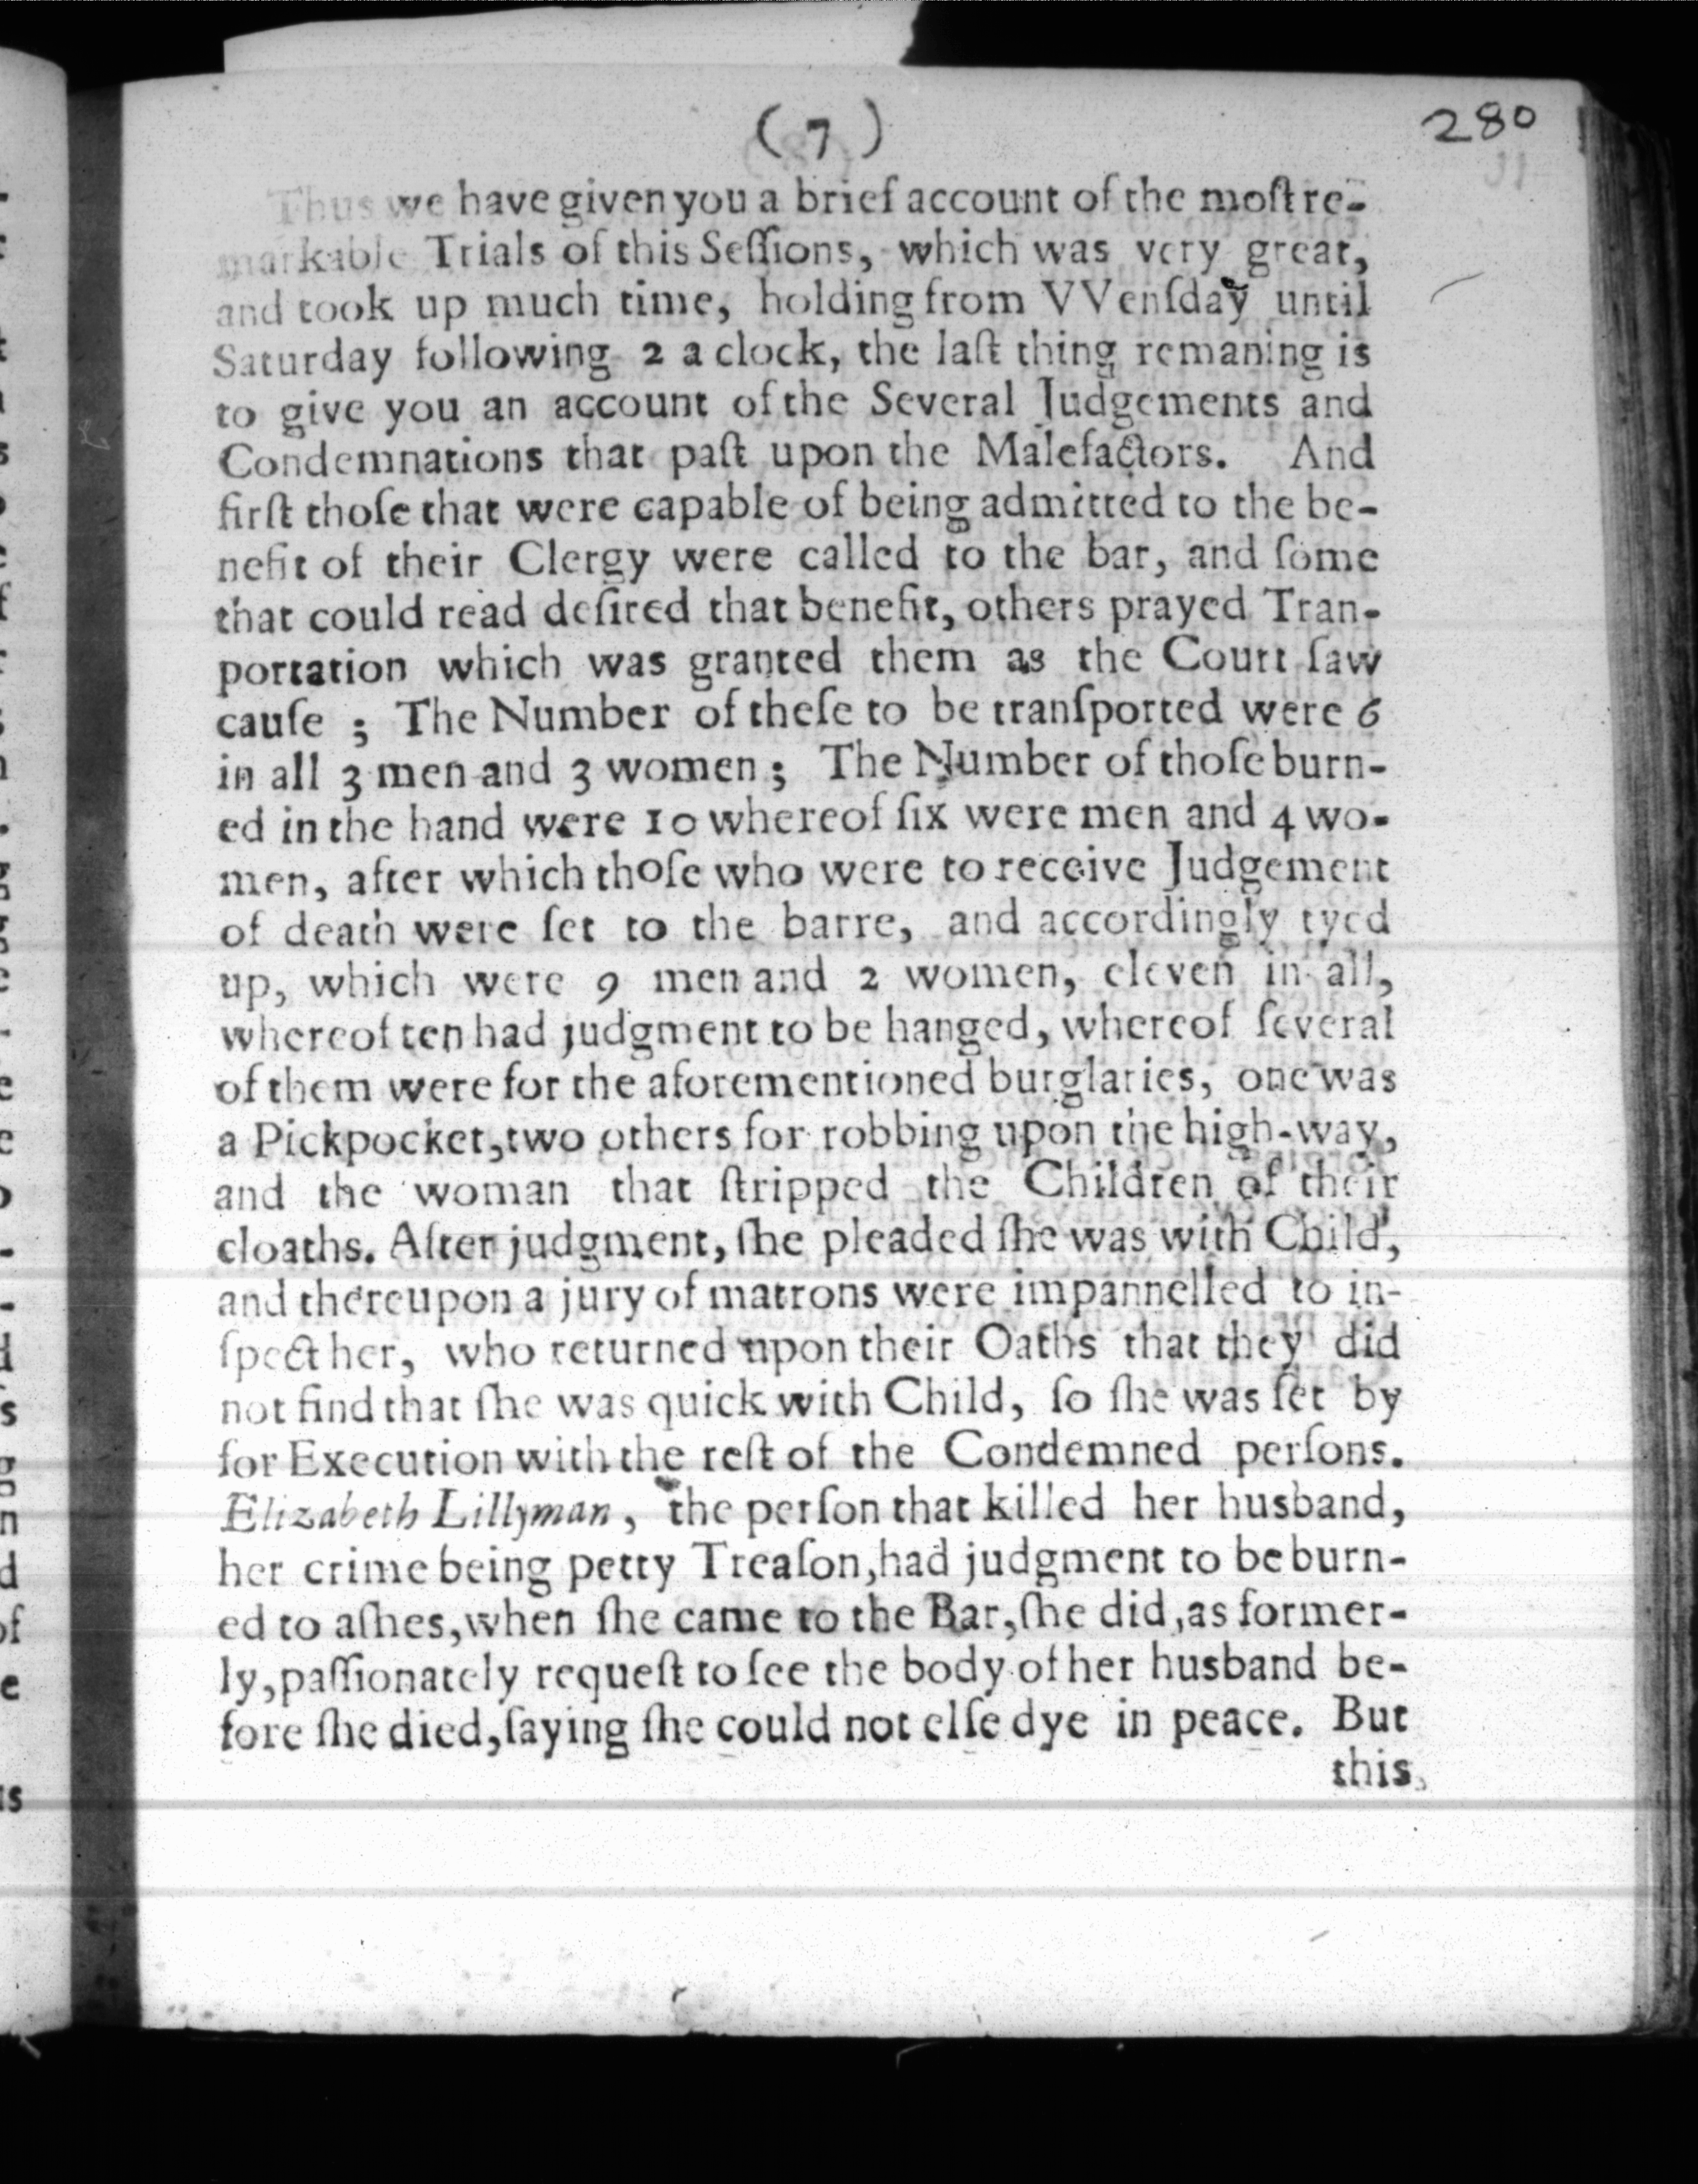 (7)
280
Thus we have given you a brief account of the moſt re-
markable Trials of this Seſſions, which was very great,
and took up much time, holding from VVenſday until
Saturday following 2 a clock, the laſt thing remaning is
to give you an account of the Several Judgements and
Condemnations that paſt upon the Malefactors. And
firſt thoſe that were capable of being admitted to the be-
nefit of their Clergy were called to the bar, and ſome
that could read deſired that benefit, others prayed Tran-
portation which was granted them as the Court ſaw
cauſe ; The Number of theſe to be tranſported were 6
in all 3 men and 3 women ; The Number of thoſe burn-
ed in the hand were 10 whereof ſix were men and 4 wo-
men, after which thoſe who were to receive Judgement
of death were ſet to the barre, and accordingly tyed
up, which were 9 men and 2 women, eleven in all,
whereof ten had judgment to be hanged, whereof ſeveral
of them were for the aforementioned burglaries, one was
a Pickpocket, two others for robbing upon the high-way,
and the woman that ſtripped the Children of their
cloaths. After judgment, ſhe pleaded ſhe was with Child,
and thereupon a jury of matrons were impannelled to in-
ſpect her, who returned upon their Oaths that they did
not find that ſhe was quick with Child, ſo ſhe was ſet by
for Execution with the reſt of the Condemned perſons.
Elizabeth Lillyman, the perſon that killed her husband,
her crime being petty Treaſon, had judgment to be burn-
ed to aſhes, when ſhe came to the Bar, ſhe did, as former-
ly, paſſionately requeſt to ſee the body of her husband be-
fore ſhe died, ſaying ſhe could not elſe dye in peace. But
this